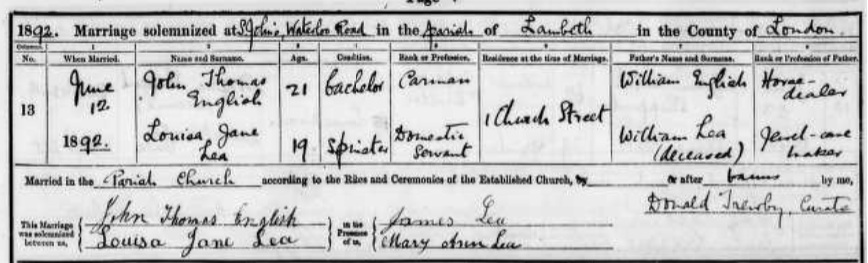 1892. Marriage solemnized at St John's, Waterloo Road in the Parish of Lambeth in the County of London.
Columns:— 1 2 3 4 5 6 7 8
No. When Married. Name and Surname. Age. Condition. Rank or Profession. Residence at the time of Marriage. Father's Name and Surname. Rank or Profession of Father.
13
June
12
1892.
John Thomas
English
21
bachelor
Carman
William English
Horse-
dealer
1 Church Street
Louisa Jane
Lea
19
Spinster
Domestic
Servant
William Lea
(deceased)
Jewel-case
maker
Married in the Parish Church according to the Rites and Ceremonies of the Established Church, by or after banns by me,
This Marriage
was solemnized
between us,
John Thomas English
Louisa Jane Lea
in the
Presence
of us,
James Lea
Mary Ann Lea
Donald Curate